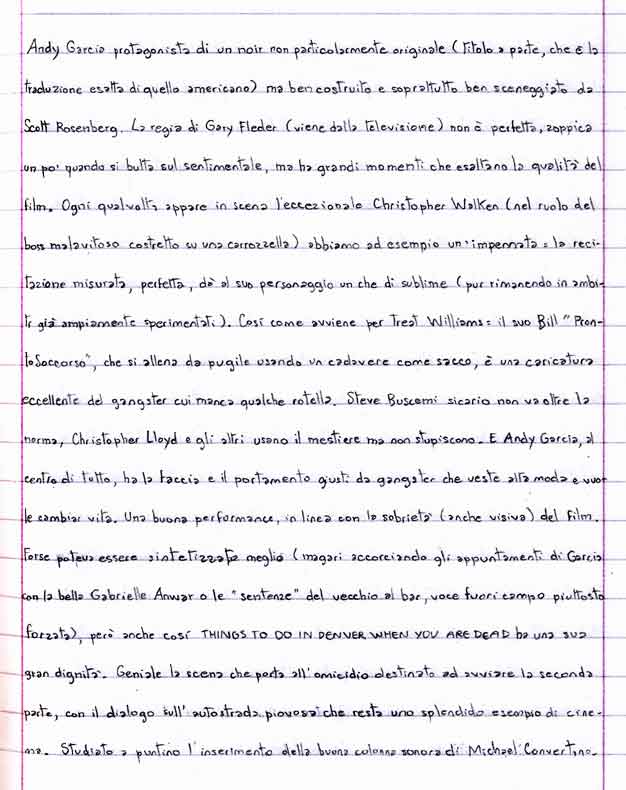 Andy Garcia protagonista di un noir non particolarmente originale (titolo a parte, che è la
traduzione esatta di quello americano) ma ben costruito e soprattutto ben sceneggiato da
Scott Rosenberg. La regia di Gary Fleder (viene dalla televisione) non è perfetta, zoppica
un po' quando si butta sul sentimentale, ma ha grandi momenti che esaltano la qualità del
film. Ogni qualvolta appare in scena l'eccezionale Christopher Walken (nel ruolo del
boss malavitoso costretto su una carrozzella) abbiamo ad esempio un'impennata: la reci-
tazione misurata, perfetta, dà al suo personaggio un che di sublime (pur rimanendo in ambi-
ti già ampiamente sperimentati). Così come avviene per Treat Williams: il suo Bill "Pron-
to Soccorso", che si allena da pugile usando un cadavere come sacco, è una caricatura
eccellente del gangster cui manca qualche rotella. Steve Buscemi sicario non va oltre la
norma, Christopher Lloyd e gli altri usano il mestiere ma non stupiscono. E Andy Garcia, al
centro di tutto, ha la faccia e il portamento giusti da gangster che veste alla moda e vuo-
le cambiar vita. Una buona performance, in linea con la sobrietà (anche visiva) del film.
Forse poteva essere sintetizzato meglio (magari accorciando gli appuntamenti di Garcia
con la bella Gabrielle Anwar o le "sentenze" del vecchio al bar, voce fuori campo piuttosto
forzata), però anche così THINGS TO DO IN DENVER WHEN YOU ARE DEAD ha una sua
gran dignità. Geniale la scena che porta all'omicidio destinato ad avviare la seconda
parte, con il dialogo sull'autostrada piovosa che resta uno splendido esempio di cine-
ma. Studiato a puntino l'inserimento della buona colonna sonora di Michael Convertino.